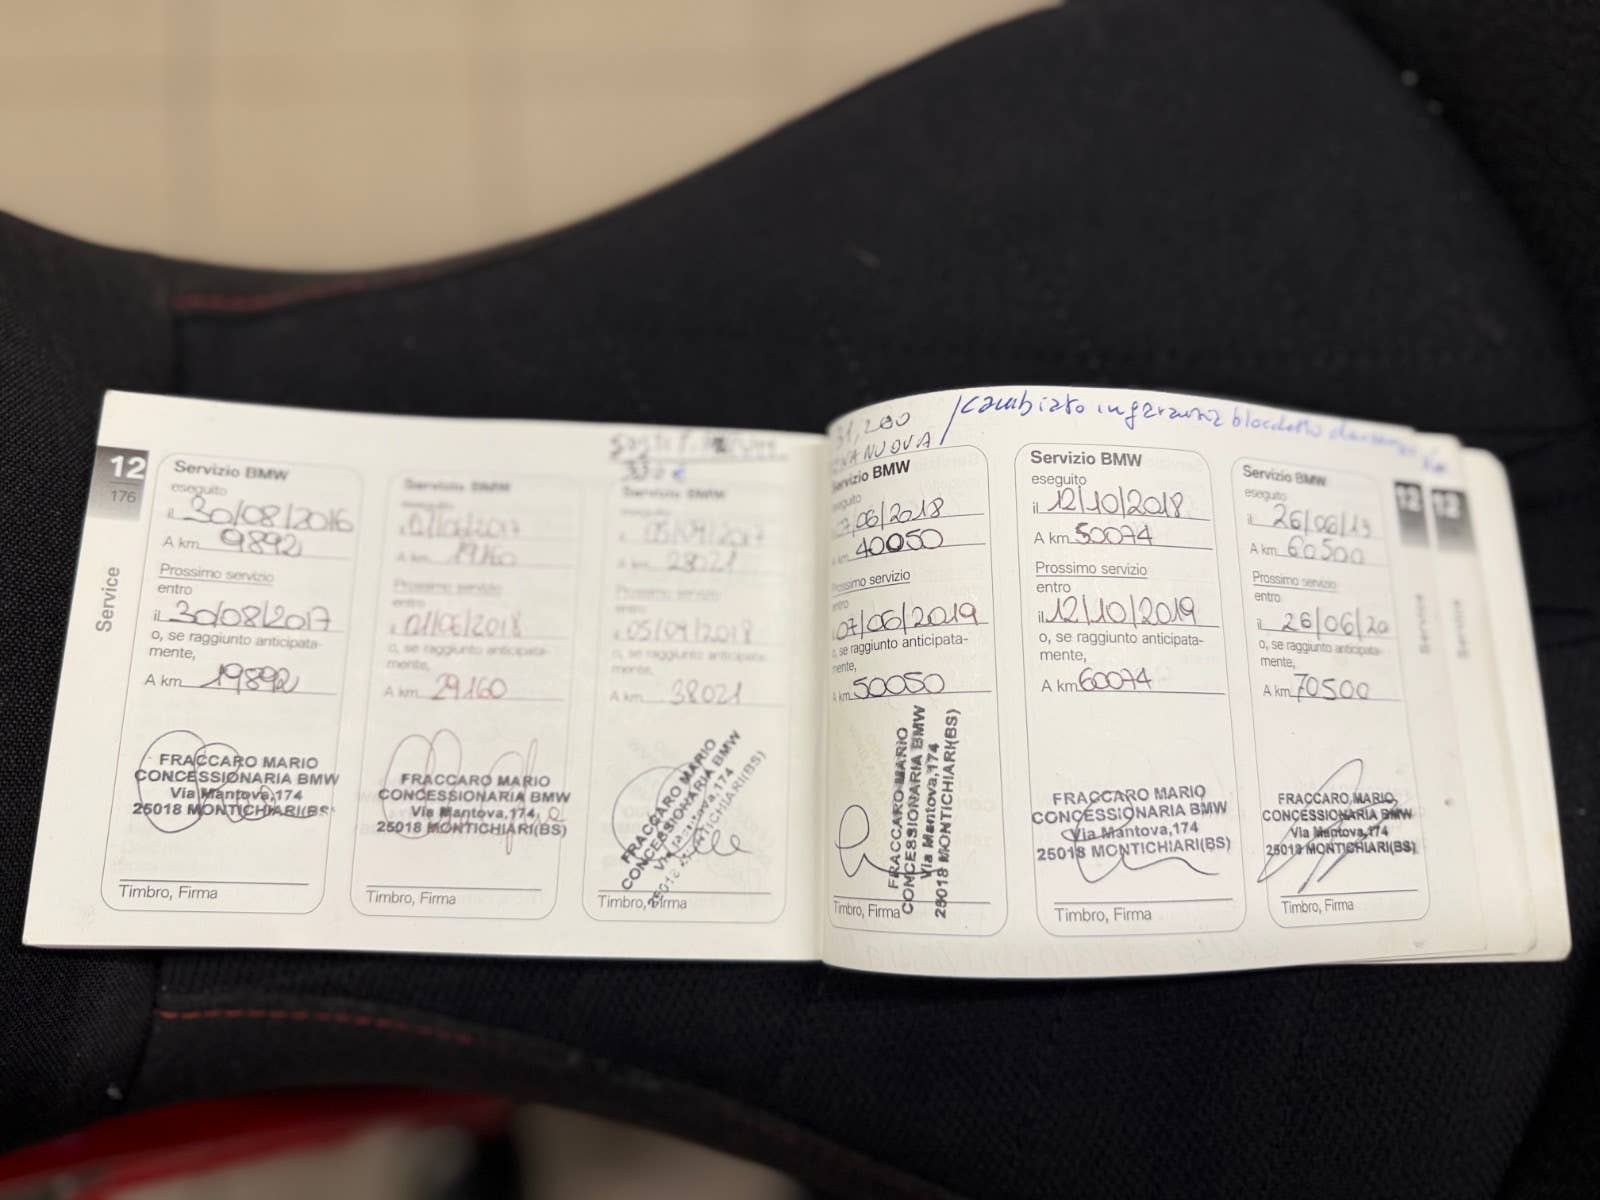 12
176
Service
Servizio BMW
eseguito
il 30/08/2016
A km 9892
Prossimo servizio
entro
il 30/08/2017
o, se raggiunto anticipata-
mente,
A km 19892
FRACCARO MARIO
CONCESSIONARIA BMW
Via Mantova,174
25018 MONTICHIARI(BS)
Timbro, Firma
Servizio BMW
A km 19160
Prossimo servizio
entro
il 01/06/2018
o, se raggiunto anticipata-
mente,
A km 29160
FRACCARO MARIO
CONCESSIONARIA BMW
Via Mantova,174
25018 MONTICHIARI(BS)
Timbro, Firma
Servizio BMW
A km 28021
Prossimo servizio
il 05/04/2018
o, se raggiunto anticipata-
mente,
A km 38021
FRACCARO MARIO
CONCESSIONARIA BMW
Via Mantova,174
25018 MONTICHIARI(BS)
Timbro, Firma
31,200
NUOVA
/cambiato in garanzia blocchetto
Servizio BMW
06/2018
km 40050
Prossimo servizio
entro
07/06/2019
o, se raggiunto anticipata-
mente,
A km 50050
FRACCARO MARIO
CONCESSIONARIA BMW
Via Mantova,174
25018 MONTICHIARI(BS)
Timbro, Firma
Servizio BMW
eseguito
il 12/10/2018
A km 50074
Prossimo servizio
entro
il 12/10/2019
o, se raggiunto anticipata-
mente,
A km 60074
FRACCARO MARIO
CONCESSIONARIA BMW
Via Mantova,174
25018 MONTICHIARI(BS)
Timbro, Firma
Servizio BMW
eseguito
il 26/06/19
A km 60500
Prossimo servizio
entro
il 26/06/20
o, se raggiunto anticipata-
mente,
A km 70500
FRACCARO MARIO
CONCESSIONARIA BMW
Via Mantova,174
25018 MONTICHIARI(BS)
Timbro, Firma
12
Service
12
Service